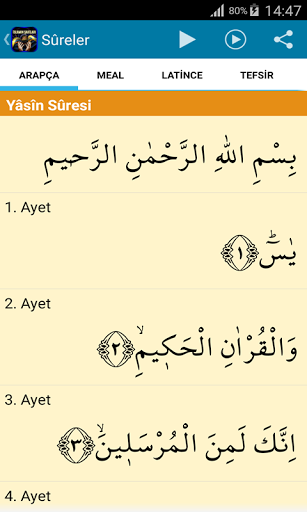 14:47
Sûreler
ARAPÇA MEAL LATİNCE TEFSİR
Yâsîn Sûresi
بِسْمِ اللهِ الرَّحْمٰنِ الرَّحيمِ
1. Ayet
يٰسٓۜ ﴿١﴾
2. Ayet
وَالْقُرْاٰنِ الْحَكيمِۙ ﴿٢﴾
3. Ayet
اِنَّكَ لَمِنَ الْمُرْسَلينَۙ ﴿٣﴾
4. Ayet